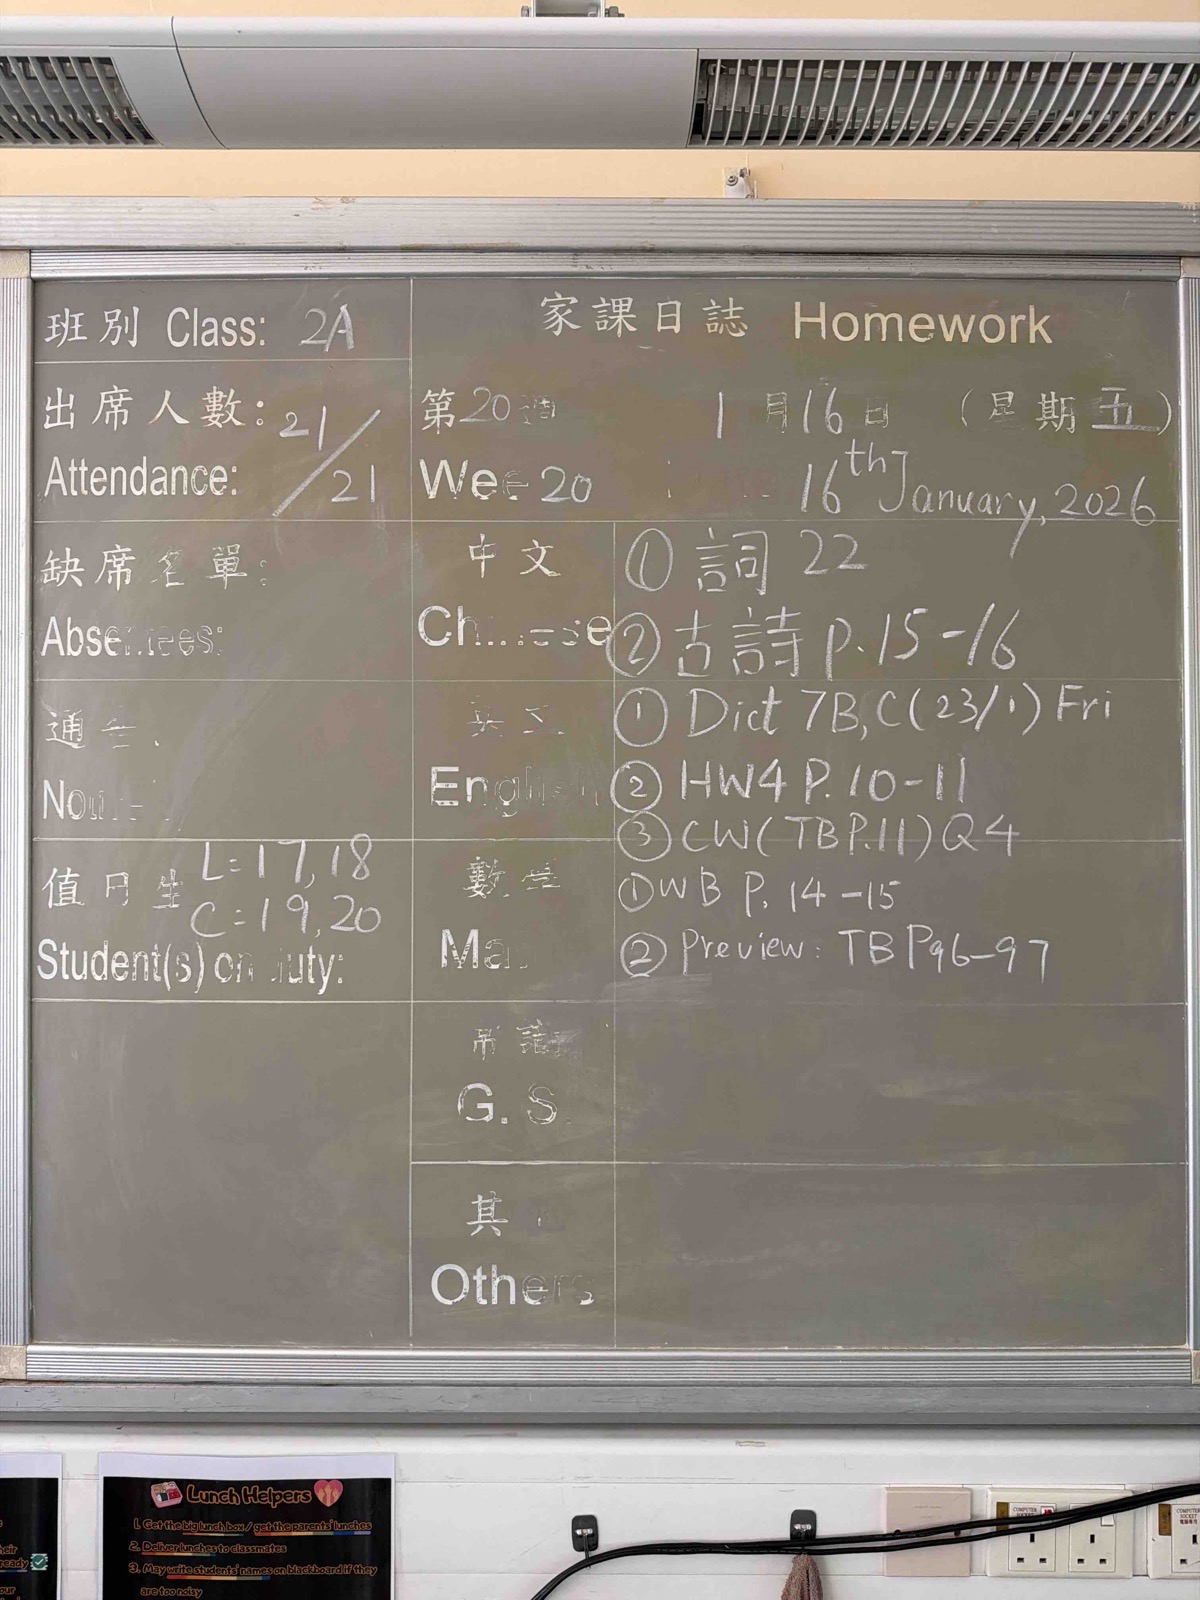 班別 Class: 2A
家課日誌 Homework
出席人數: 21/21
Attendance:
第20週 1月16日 (星期五)
Wee 20 16th January, 2026
缺席名單:
Absentees:
中文
Chinese
① 詞 22
② 古詩 p.15-16
通告
英文
English
① Dict 7B,C(23/1) Fri
② HW4 P.10-11
③ CW(TBP.11)Q4
值日生 L=17,18
C=19,20
Student(s) on duty:
數學
Ma
① WB P. 14-15
② Preview: TB P96-97
常識
G. S.
其
Others
Lunch Helpers
1. Get the big lunch box / get the parents' lunches
2. Deliver lunches to classmates
3. May write students' names on blackboard if they
are too noisy
COMPUTER SOCKET
COMPUTER SOCKET